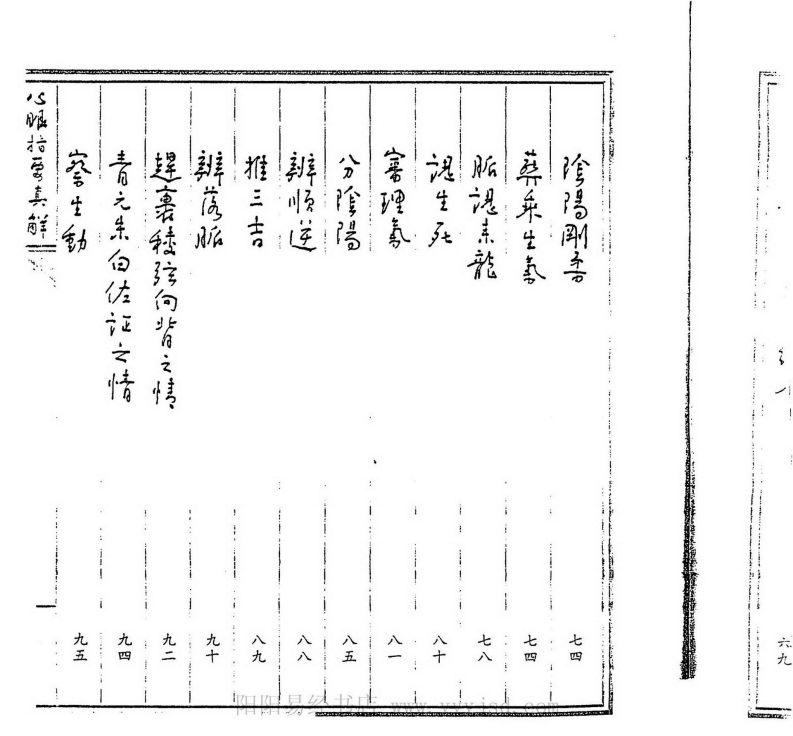 陰陽剛柔 七四
葬乘生氣 七四
脈認來龍 七八
認生死 八十
審理氣 八一
分陰陽 八五
辨順逆 八八
推三吉 八九
辨落脈 九十
趕裹稜弦向背之情 九二
青元朱白佐証之情 九四
察生動 九五
心眼指要真解
六九
阴阳易经书店 www.yyyjsd.com